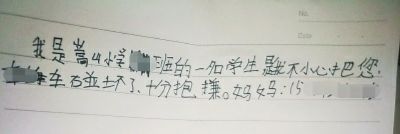 No.
Date
我是蒿山小学班的一名学生是我不小心把您
车石並坏了、十分抱歉。妈妈:15